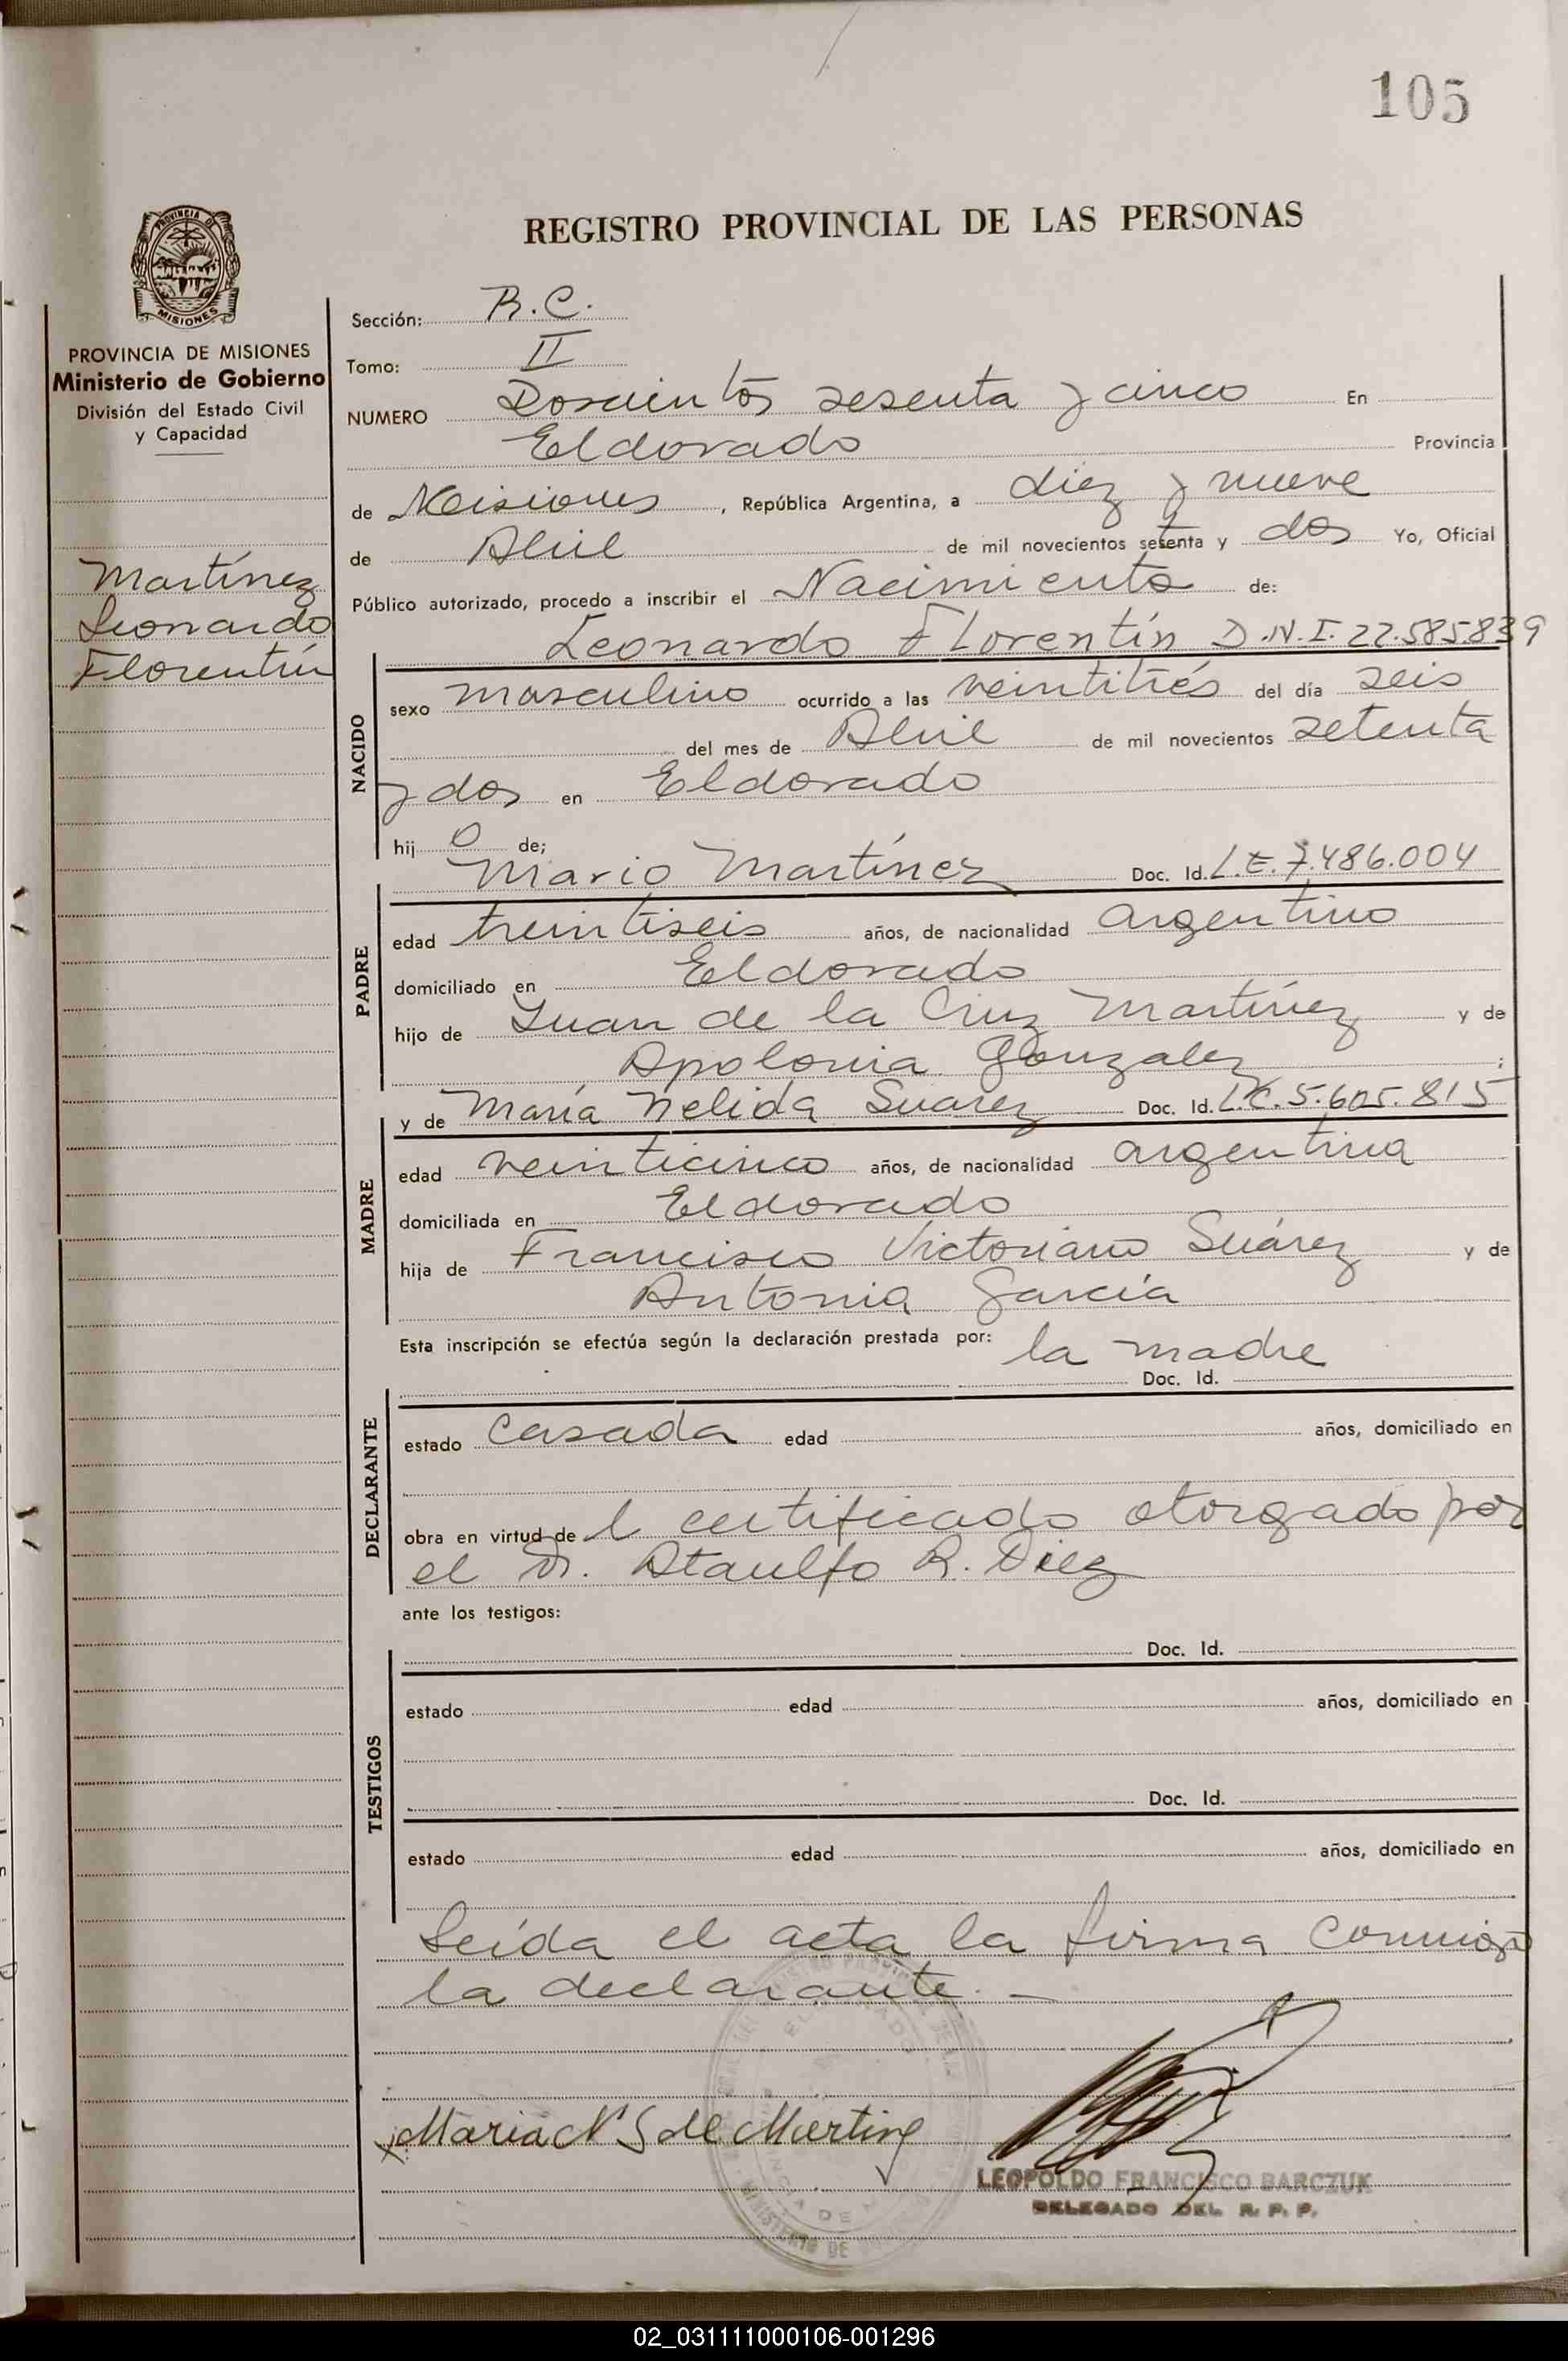 105
REGISTRO PROVINCIAL DE LAS PERSONAS
PROVINCIA DE MISIONES
PROVINCIA DE MISIONES
Ministerio de Gobierno
División del Estado Civil
y Capacidad
Martínez
Leonardo
Florentín
Sección: R.C.
Tomo: II
NUMERO Doscientos sesenta y cinco En
Eldorado Provincia
de Misiones, República Argentina, a diez y nueve
de Abril de mil novecientos setenta y dos Yo, Oficial
Público autorizado, procedo a inscribir el Nacimiento de:
Leonardo Florentín D.N.I. 22.585.839
NACIDO
sexo masculino ocurrido a las veintitrés del día seis
del mes de Abril de mil novecientos setenta
y dos en Eldorado
hij o de;
Mario Martínez Doc. Id. L.E. 7.486.004
PADRE
edad treintiseis años, de nacionalidad argentino
domiciliado en Eldorado
hijo de Juan de la Cruz Martínez y de
Apolonia Gonzalez ;
y de María Nelida Suarez Doc. Id. L.C. 5.605.815
MADRE
edad veinticinco años, de nacionalidad argentina
domiciliada en Eldorado
hija de Francisco Victoriano Suárez y de
Antonia García
Esta inscripción se efectúa según la declaración prestada por: la madre
Doc. Id.
DECLARANTE
estado casada edad años, domiciliado en
obra en virtud de l certificado otorgado por
el Dr. Ataulfo R. Diez
ante los testigos:
Doc. Id.
TESTIGOS
estado edad años, domiciliado en
Doc. Id.
estado edad años, domiciliado en
Leída el acta la firma conmigo
la declarante. —
Maria N S de Martinez
LEOPOLDO FRANCISCO BARCZUK
DELEGADO DEL R. P. P.
02_031111000106-001296